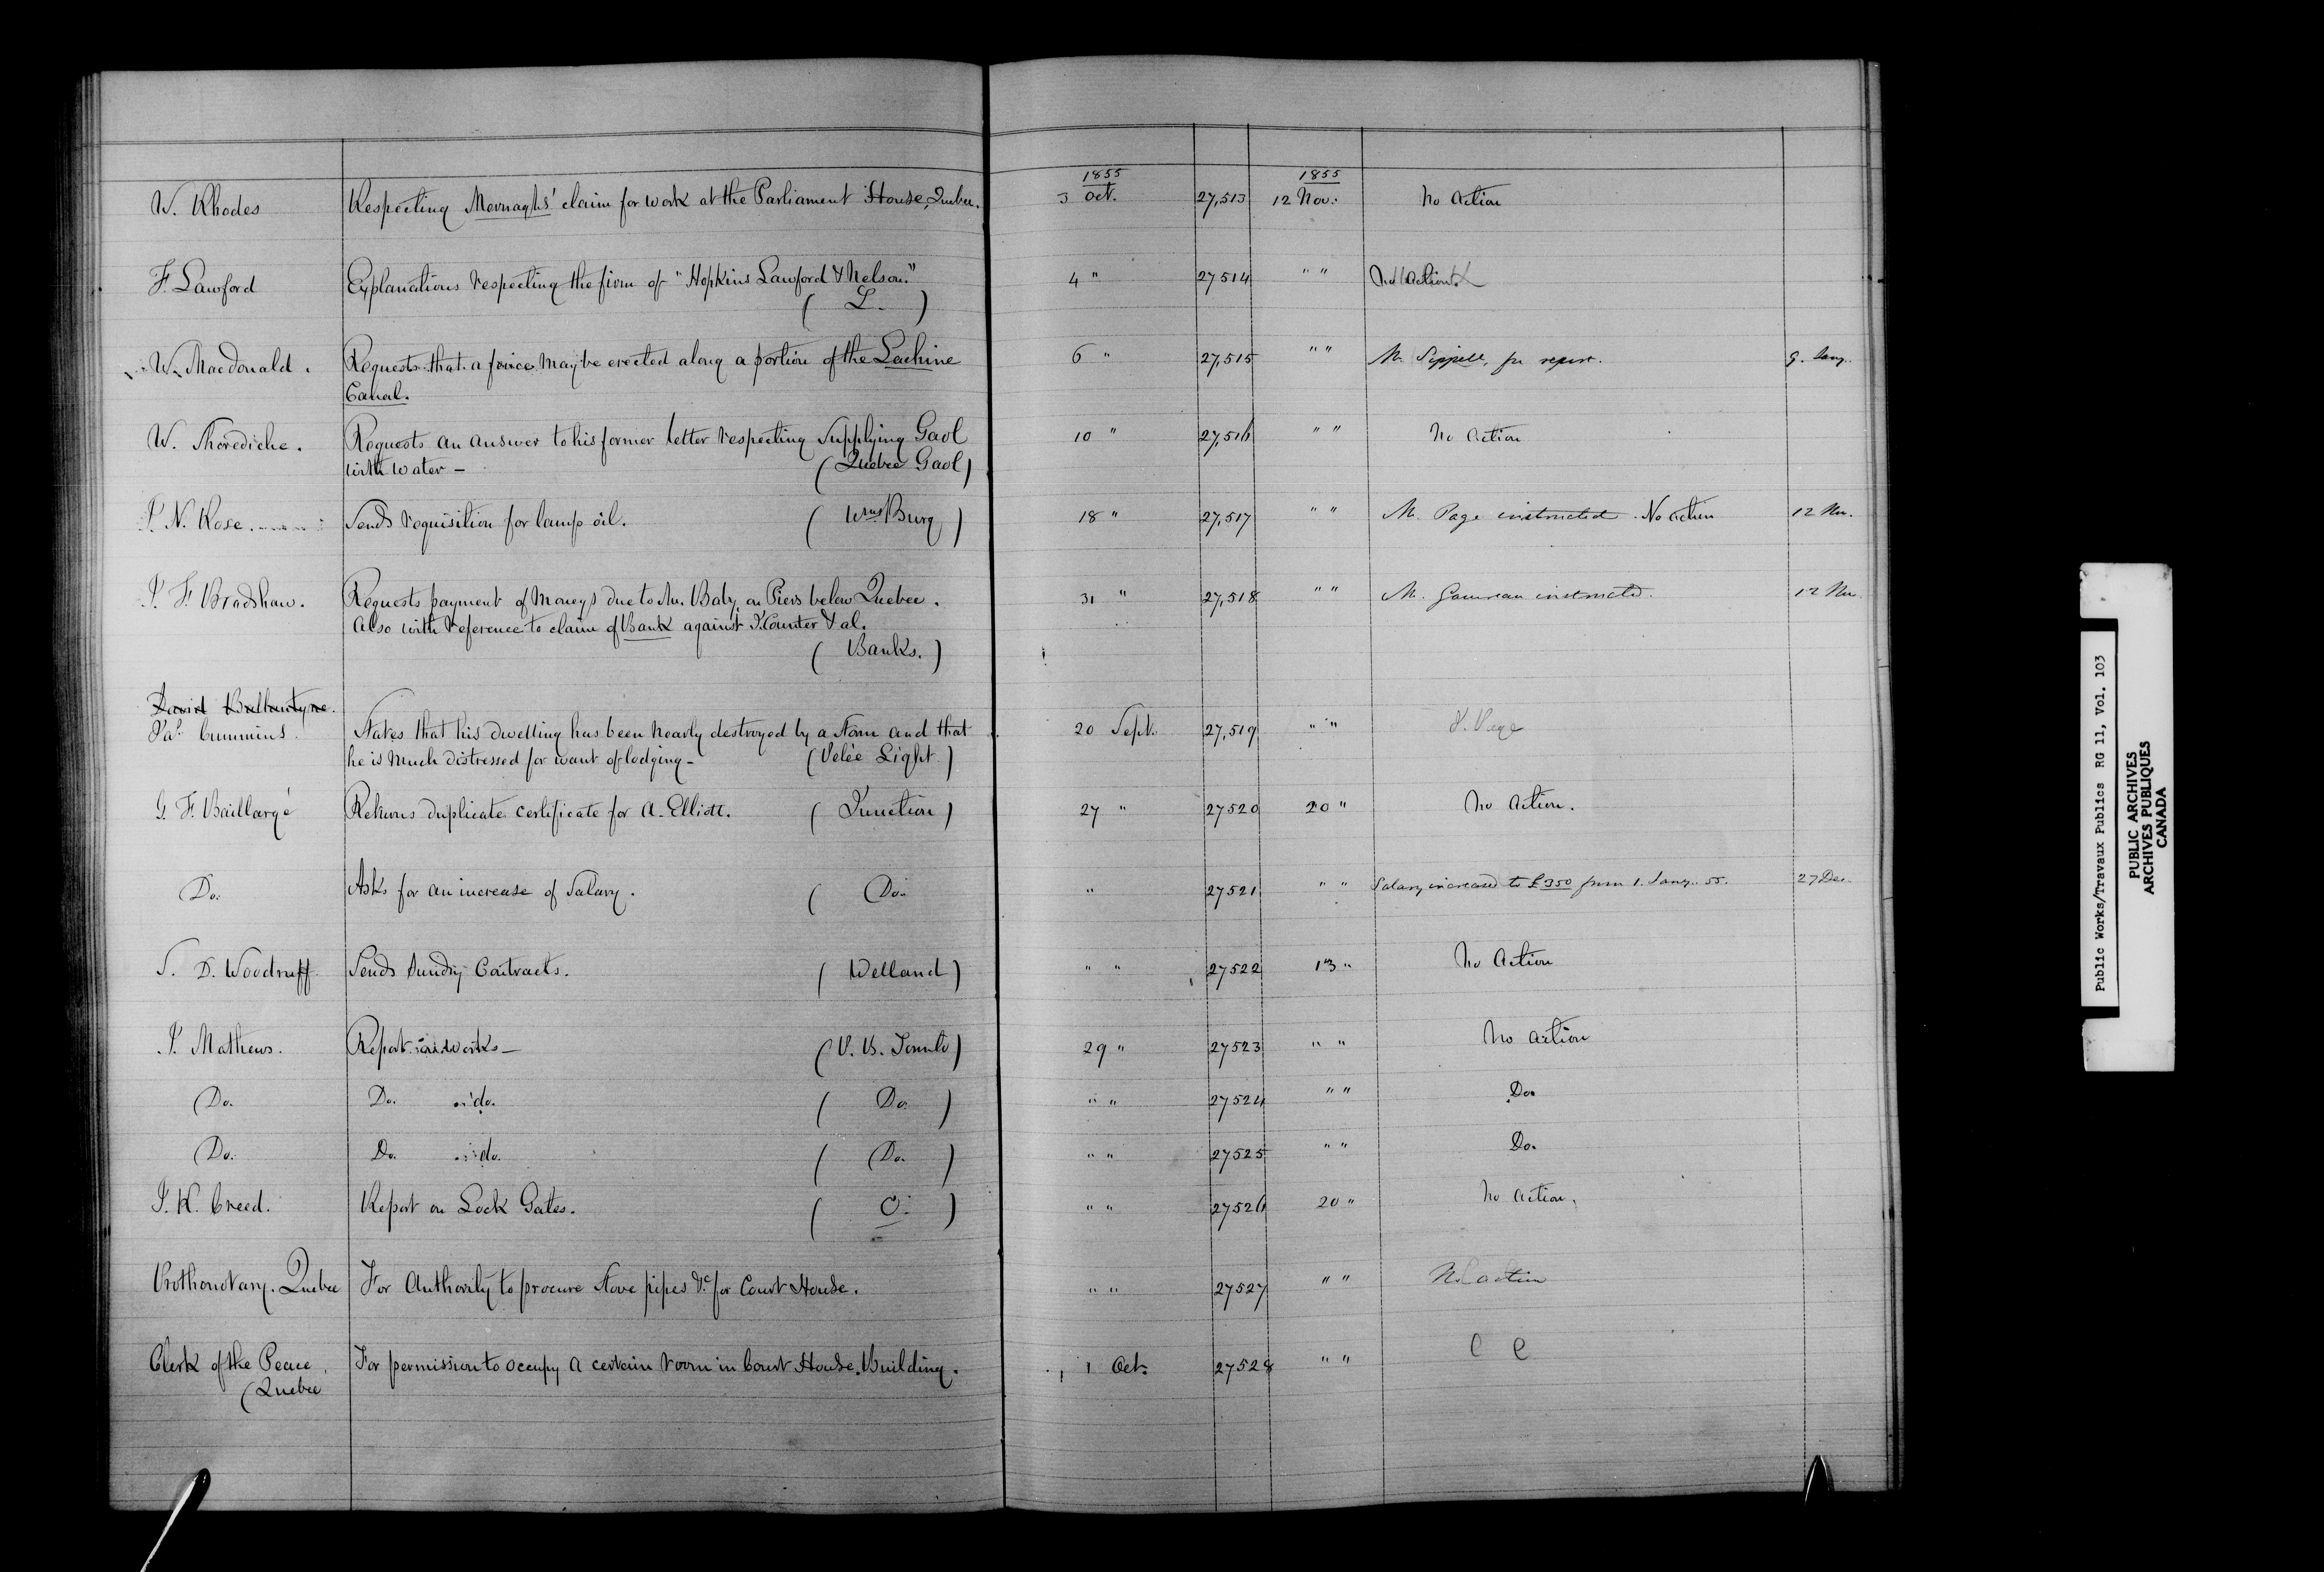 1855 1855
W. Rhodes Respecting Mernaghs' claim for work at the Parliament House, Quebec. 3 Oct. 27,513 12 Nov. No Action
F. Lawford Explanations respecting the firm of "Hopkins Lawford & Nelson." 4 " 27514 " " No Action
( L. )
W. Macdonald. Requests that a fence may be erected along a portion of the Lachine 6 " 27,515 " " Mr. Sippell, for report. 9. Jany.
Canal.
W. Thorediche. Requests an answer to his former letter respecting Supplying Gaol 10 " 27,516 " " No Action
with water – (Quebec Gaol)
J. N. Rose. Sends requisition for lamp oil. ( Wms Burg ) 18 " 27,517 " " Mr. Page instructed. No action 12 Nov.
J. F. Bradshaw. Requests payment of moneys due to Mr. Baby, on Piers below Quebec. 31 " 27,518 " " Mr. Gauvreau instructed. 12 Nov.
Also with reference to claim of Bank against J. Counter & al.
( Banks. )
David Ballantyne.
Jas. Cummins. States that his dwelling has been nearly destroyed by a Storm and that 20 Sept. 27,519 " " J. Page
he is much distressed for want of lodging – (Pelée Light)
G. F. Baillargé Returns duplicate certificate for A. Elliott. ( Junction ) 27 " 27520 20 " No Action.
Do. Asks for an increase of Salary. ( Do. " 27521 " " Salary increased to £350 from 1. Jany. 55. 27 Dec.
S. D. Woodruff. Sends Sundry Contracts. ( Welland ) " " 27522 13 " No Action
J. Mathews. Report on works – ( U. B. ) 29 " 27523 " " No Action
Do. Do. do. ( Do. ) " " 27524 " " Do.
Do. Do. do. ( Do. ) " " 27525 " " Do.
J. R. Creed. Report on Lock Gates. ( O. ) " " 27526 20 " No Action.
Prothonotary. Quebec For Authority to procure Stove pipes &c for Court House. " " 27527 " " No action
Clerk of the Peace, For permission to occupy a certain room in Court House Building. 1 Oct. 27528 " "
(Quebec
Public Works/Travaux Publics RG 11, Vol. 103
PUBLIC ARCHIVES
ARCHIVES PUBLIQUES
CANADA